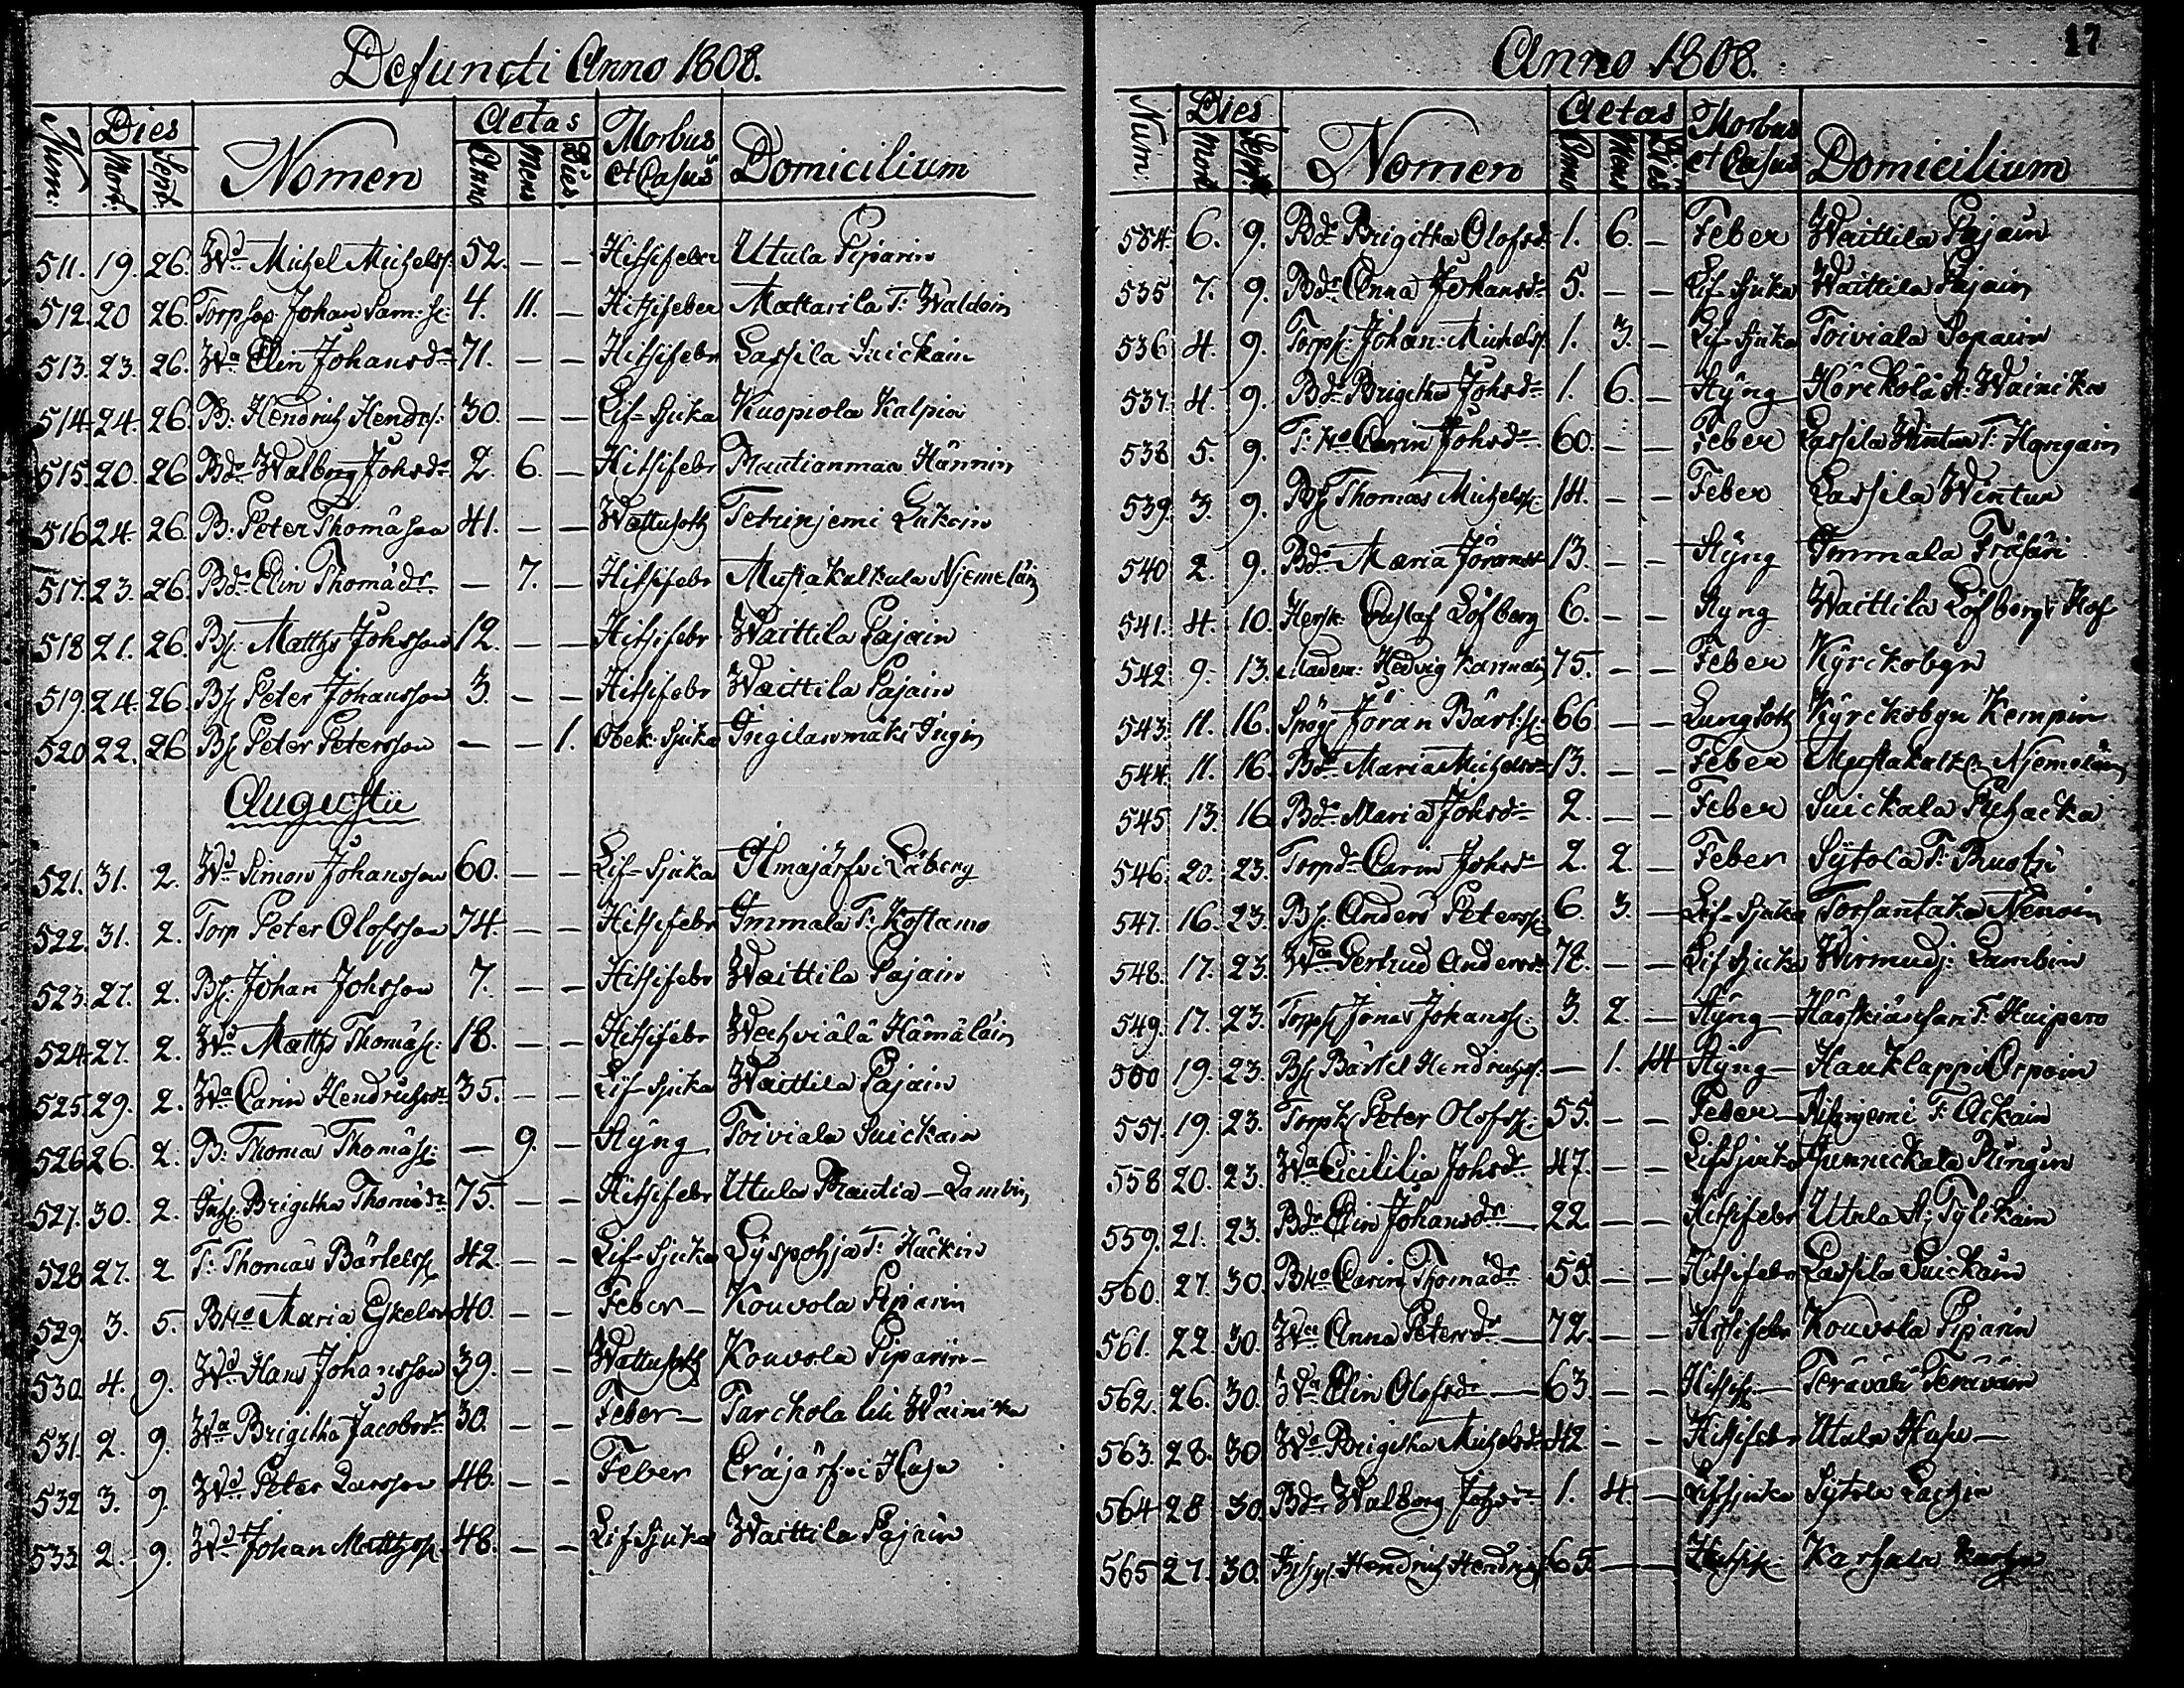 Defuncti Anno 1808.
Num: Dies Mort. Sept. Nomen Aetas Anno Mens Dies. Morbus et Casus Domicilium
511. 19. 26. Michel Michelss: 52. — — Hitsifeber Utula Piparin
512. 20 26. Johan Sam: 4. 11. — Hitsifeber Mattarila T: Waldoin
513. 23. 26. Wa Elin Johansdr 71. — — Hitsifebr Lassila Suickain
514. 24. 26. B: Hendrich Hendrs: 30. — — Lif-Sjuka Kuopiola Kalpio
515. 20. 26 Bdr Walborg Johsdr 2. 6. — Hitsifebr Rautianmaa Hännin
516 24. 26. B: Peter Thomasson 41. — — Wattusoth
517. 23. 26. Bdr Elin Thomädr — 7. — Hitsifebr Mustakalkula Njemeläin
518 21. 26. Bs: Matths Johsson 12. — — Hitsifebr Waittila Pajain
519. 24. 26. Bs Peter Johansson 3. — — Hitsifebr Waittila Pajain
520 22. 26 Bs Peter Petersson — — 1. Obek: Sjuka Ingilanmäki Ingin
Augustii
521. 31. 2. Simon Johansson 60. — — Lif-Sjuka Ilmajärfvi
522. 31. 2. Torp Peter Olofsson 74. — — Hitsifebr Immala T: Kostamo
523. 27. 2. Bs: Johan Johsson 7. — — Hitsifebr Waittila Pajain
524 27. 2. Matths Thomäs: 18. — — Hitsifebr Wechviälä Hämäläin
525 29. 2. Wa Carin Hendrichsdr 35. — — Lif-Sjuka Waittila Pajain
526 26. 2. B: Thomas Thomäs: — 9. — Styng Toiviala Suickain
527. 30. 2. Brigitha Thomädr 75. — — Hitsifebr Utula Rautia-Lambin
528 27. 2 T: Thomas Bärtelss 42. — — Lif-Sjuka Lyspohja T: Häckin
529. 3. 5. Maria Eskelsdr 40. — — Feber — Kouvola Piparin
530. 4. 9. Hans Johansson 39. — — Wattusoth Kouvola Piparin —
531. 2. 9. Wa Brigitha Jacobsdr 30. — — Feber — Tarckola lilli Wäinicka
532 3. 9. Peter Larsson 46. — — Feber Eräjärfvi
533 2. 9. Johan Matthss: 48. — — Lif Sjuka Waittila Pajain
Anno 1808. 17
Num: Dies Mort Sept: Nomen Aetas Anno Mens Dies Morbus et Casus Domicilium
534. 6. 9. Bdr Brigitha Olofsdr 1. 6. — Feber Waittila Pajain
535 7. 9. Bdr Anna Johansdr 5. — — Lif-Sjuka Waittila Pajain
536 4. 9. Torps: Johan Michelss: 1. 3. — Lif-Sjuka Toiviala Sopain
537. 4. 9. Bdr Brigitha Johsdr 1. 6. — Styng Hörckölä A: Wainicka
538 5. 9. Carin Johsdr 60. — — Feber Lassila Wintur T: Hangain
539. 3. 9. Bs Thomas Michelss: 14. — — Feber Lassila Wintur
540 2. 9. Bdr Maria Jöransdr 13. — — Styng Immala Träsäri
541. 4. 10. Gustaf Löfberg 6. — — Styng Waittila Löfbergs
542. 9. 13. Hedvig 75. — — Feber Kyrckobyn
543. 11. 16. Jöran Bärt:s: 66 — — Lungsoth Kyrckobyn Kempin
544. 11. 16. Bdr Maria Michelsdr 13. — — Feber Njemeläin
545 13. 16 Bdr Maria Johsdr 2. — — Feber Suickala
546. 20. 23. Torpdr Carin Johsdr 2. 2. — Feber Sytola T:
547. 16. 23. Bs: Anders Peterss: 6. 3. — Lif-Sjuka Torsantaka Nenoin
548. 17. 23. Wa Gertrud Andersdr 78. — — Lif Sjuka Wirmudj: Lambin
549. 17. 23. Torps Jönas Johanss: 3. 2. — Styng — T: Huipero
550 19. 23. Bs Bärtil Hendrichss: — 1. 14 Styng — Hauklappi Orpoin
551. 19. 23. Peter Olofss: 55. — — Feber — T: Ackain
558 20. 23. Wa Cicililia Johsdr 47. — — Lif Sjuka Junnickala Ringin
559. 21. 23. Bdr Elin Johansdr — 22 — — Hitsifebr Utula A: Tylikain
560. 27. 30. Carin Thomädr 55. — — Hitsifebr Lassila Suickain
561. 22. 30. Wa Anna Petersdr — 72. — — Hitsifebr Kouvola Piparin
562. 26. 30. Wa Elin Olofsdr — 63. — — Hitsif — Terävälä Teräväin
563. 28. 30 Wa Brigitha Michelsdr 42 — — Hitsifebr Utula —
564 28 30 Bdr Walborg Johsdr 1. 4. — Lifsjuka Sytola
565 27. 30. Hendrich Hendrichs 65. — — Karsula